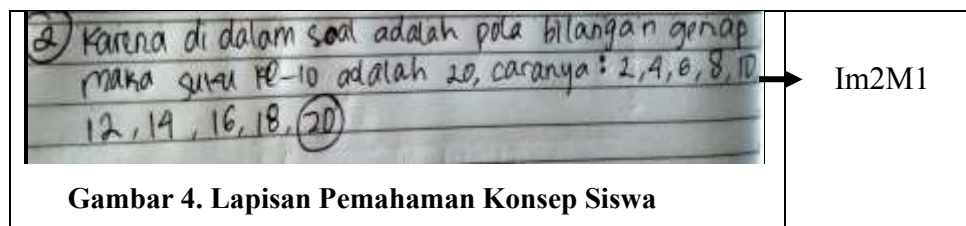 2) Karena di dalam soal adalah pola bilangan genap
maka suku ke-10 adalah 20, caranya: 2, 4, 6, 8, 10
12, 14, 16, 18, 20
Im2M1
Gambar 4. Lapisan Pemahaman Konsep Siswa